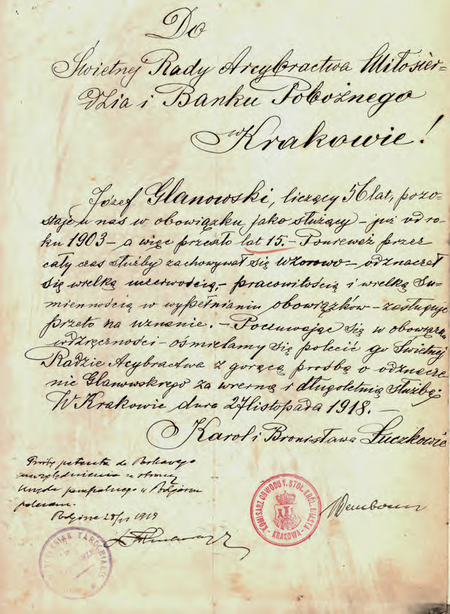 Do
Świetnej Rady Arcybractwa Miłosier-
dzia i Banku Pobożnego
w Krakowie!
Józef Glanowski, liczący 56 lat, pozo-
staje u nas w obowiązku jako służący – już od ro-
ku 1903 – a więc przeszło lat 15. – Ponieważ przez
cały czas służby zachowywał się wzorowo – odznaczał
się wielką uczciwością, – pracowitością i wielką su-
miennością w wypełnianiu obowiązków – zasługuje
przeto na uznanie. – Poczuwając się w obowiązku
wdzięczności – ośmielamy się polecić go Świetnej
Radzie Arcybractwa z gorącą prośbą o odznacze-
nie Glanowskiego za wierną i długoletnią służbę.
W Krakowie dnia 27 listopada 1918. –
Karol i Bronisława Łuczkowie
Prośbę petenta do łaskawego
uwzględnienia
w Podgórzu
polecam.
Podgórze 1918
KOMISARZ OBWODU V. STOŁ. KRÓL. MIASTA
KRAKOWA